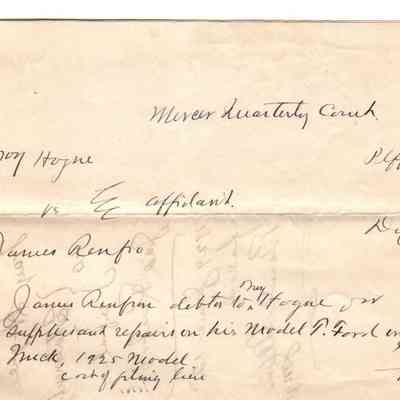 Mercer Quarterly Court
roy Hogue Plff
vs affidavit.
James Renfro
James Renfroe debtor to Roy Hogue for
Supplies and repairs on his Model T. Ford
Truck, 1925 Model
cost of filing lien